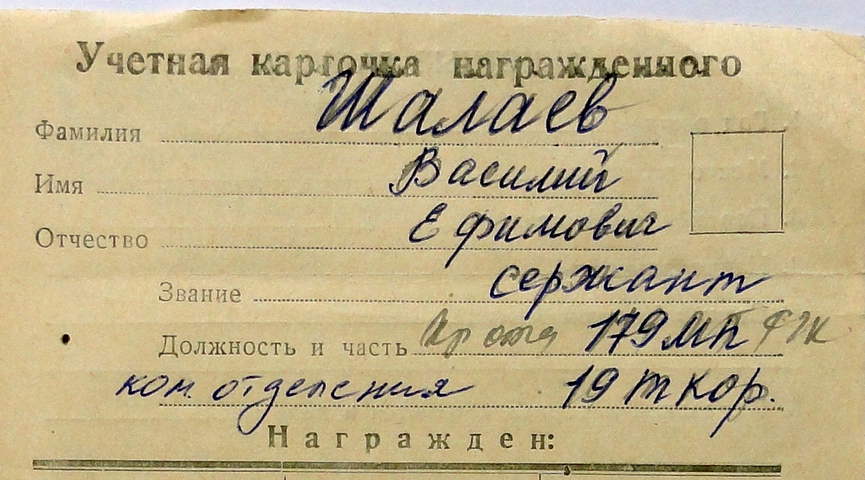 Учетная карточка награжденного
Фамилия Шалаев
Имя Василий
Отчество Ефимович
Звание сержант
Должность и часть 179 МП
ком. отделения 19 т кор.
Награжден: